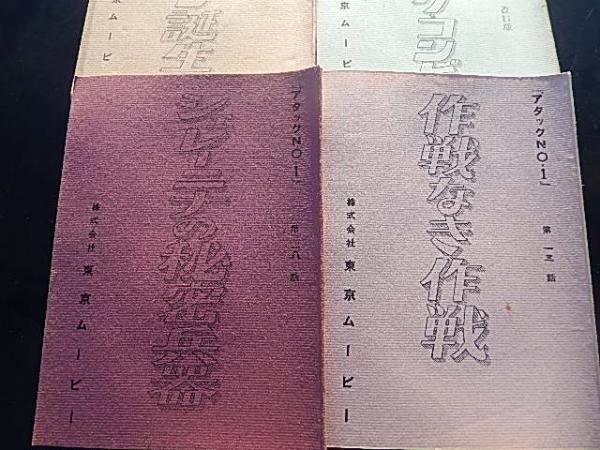 誕生
京ムービ
コンビ
改訂版
京ムービ
「アタックNO.1」
第一三話
作戦なき作戦
株式会社 東京ムービー
「アタックNO.1」
第二八話
シレーニナの秘密兵器
株式会社 東京ムービー